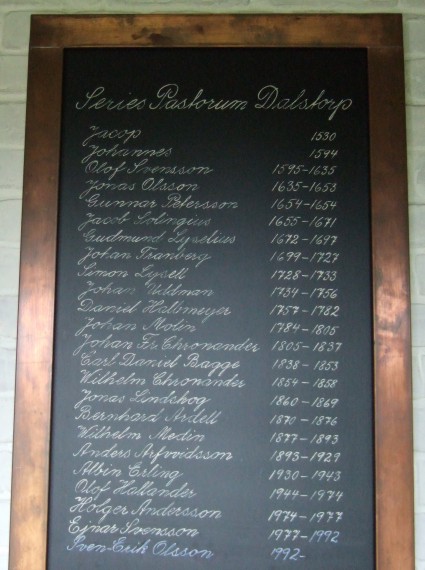 Series Pastorum Dalstorp
Jacop 1530
Johannes 1544
Olof Svensson 1595-1635
Jonas Olsson 1635-1653
Gunnar Petersson 1654-1654
Jacob Solingius 1655-1671
Gudmund Lyselius 1672-1697
Johan Franberg 1699-1727
Simon Lysell 1728-1733
Johan Wildman 1734-1756
Daniel Hallemeyer 1757-1782
Johan Molin 1784-1805
Johan Fr Chronander 1805-1837
Carl Daniel Bagge 1838-1853
Wilhelm Chronander 1854-1858
Jonas Lindskog 1860-1869
Bernhard Ardell 1870-1876
Wilhelm Medin 1877-1893
Anders Arfwidsson 1893-1929
Albin Erling 1930-1943
Olof Hallander 1944-1974
Holger Andersson 1974-1977
Ejnar Svensson 1977-1992
Sven-Erik Olsson 1992-